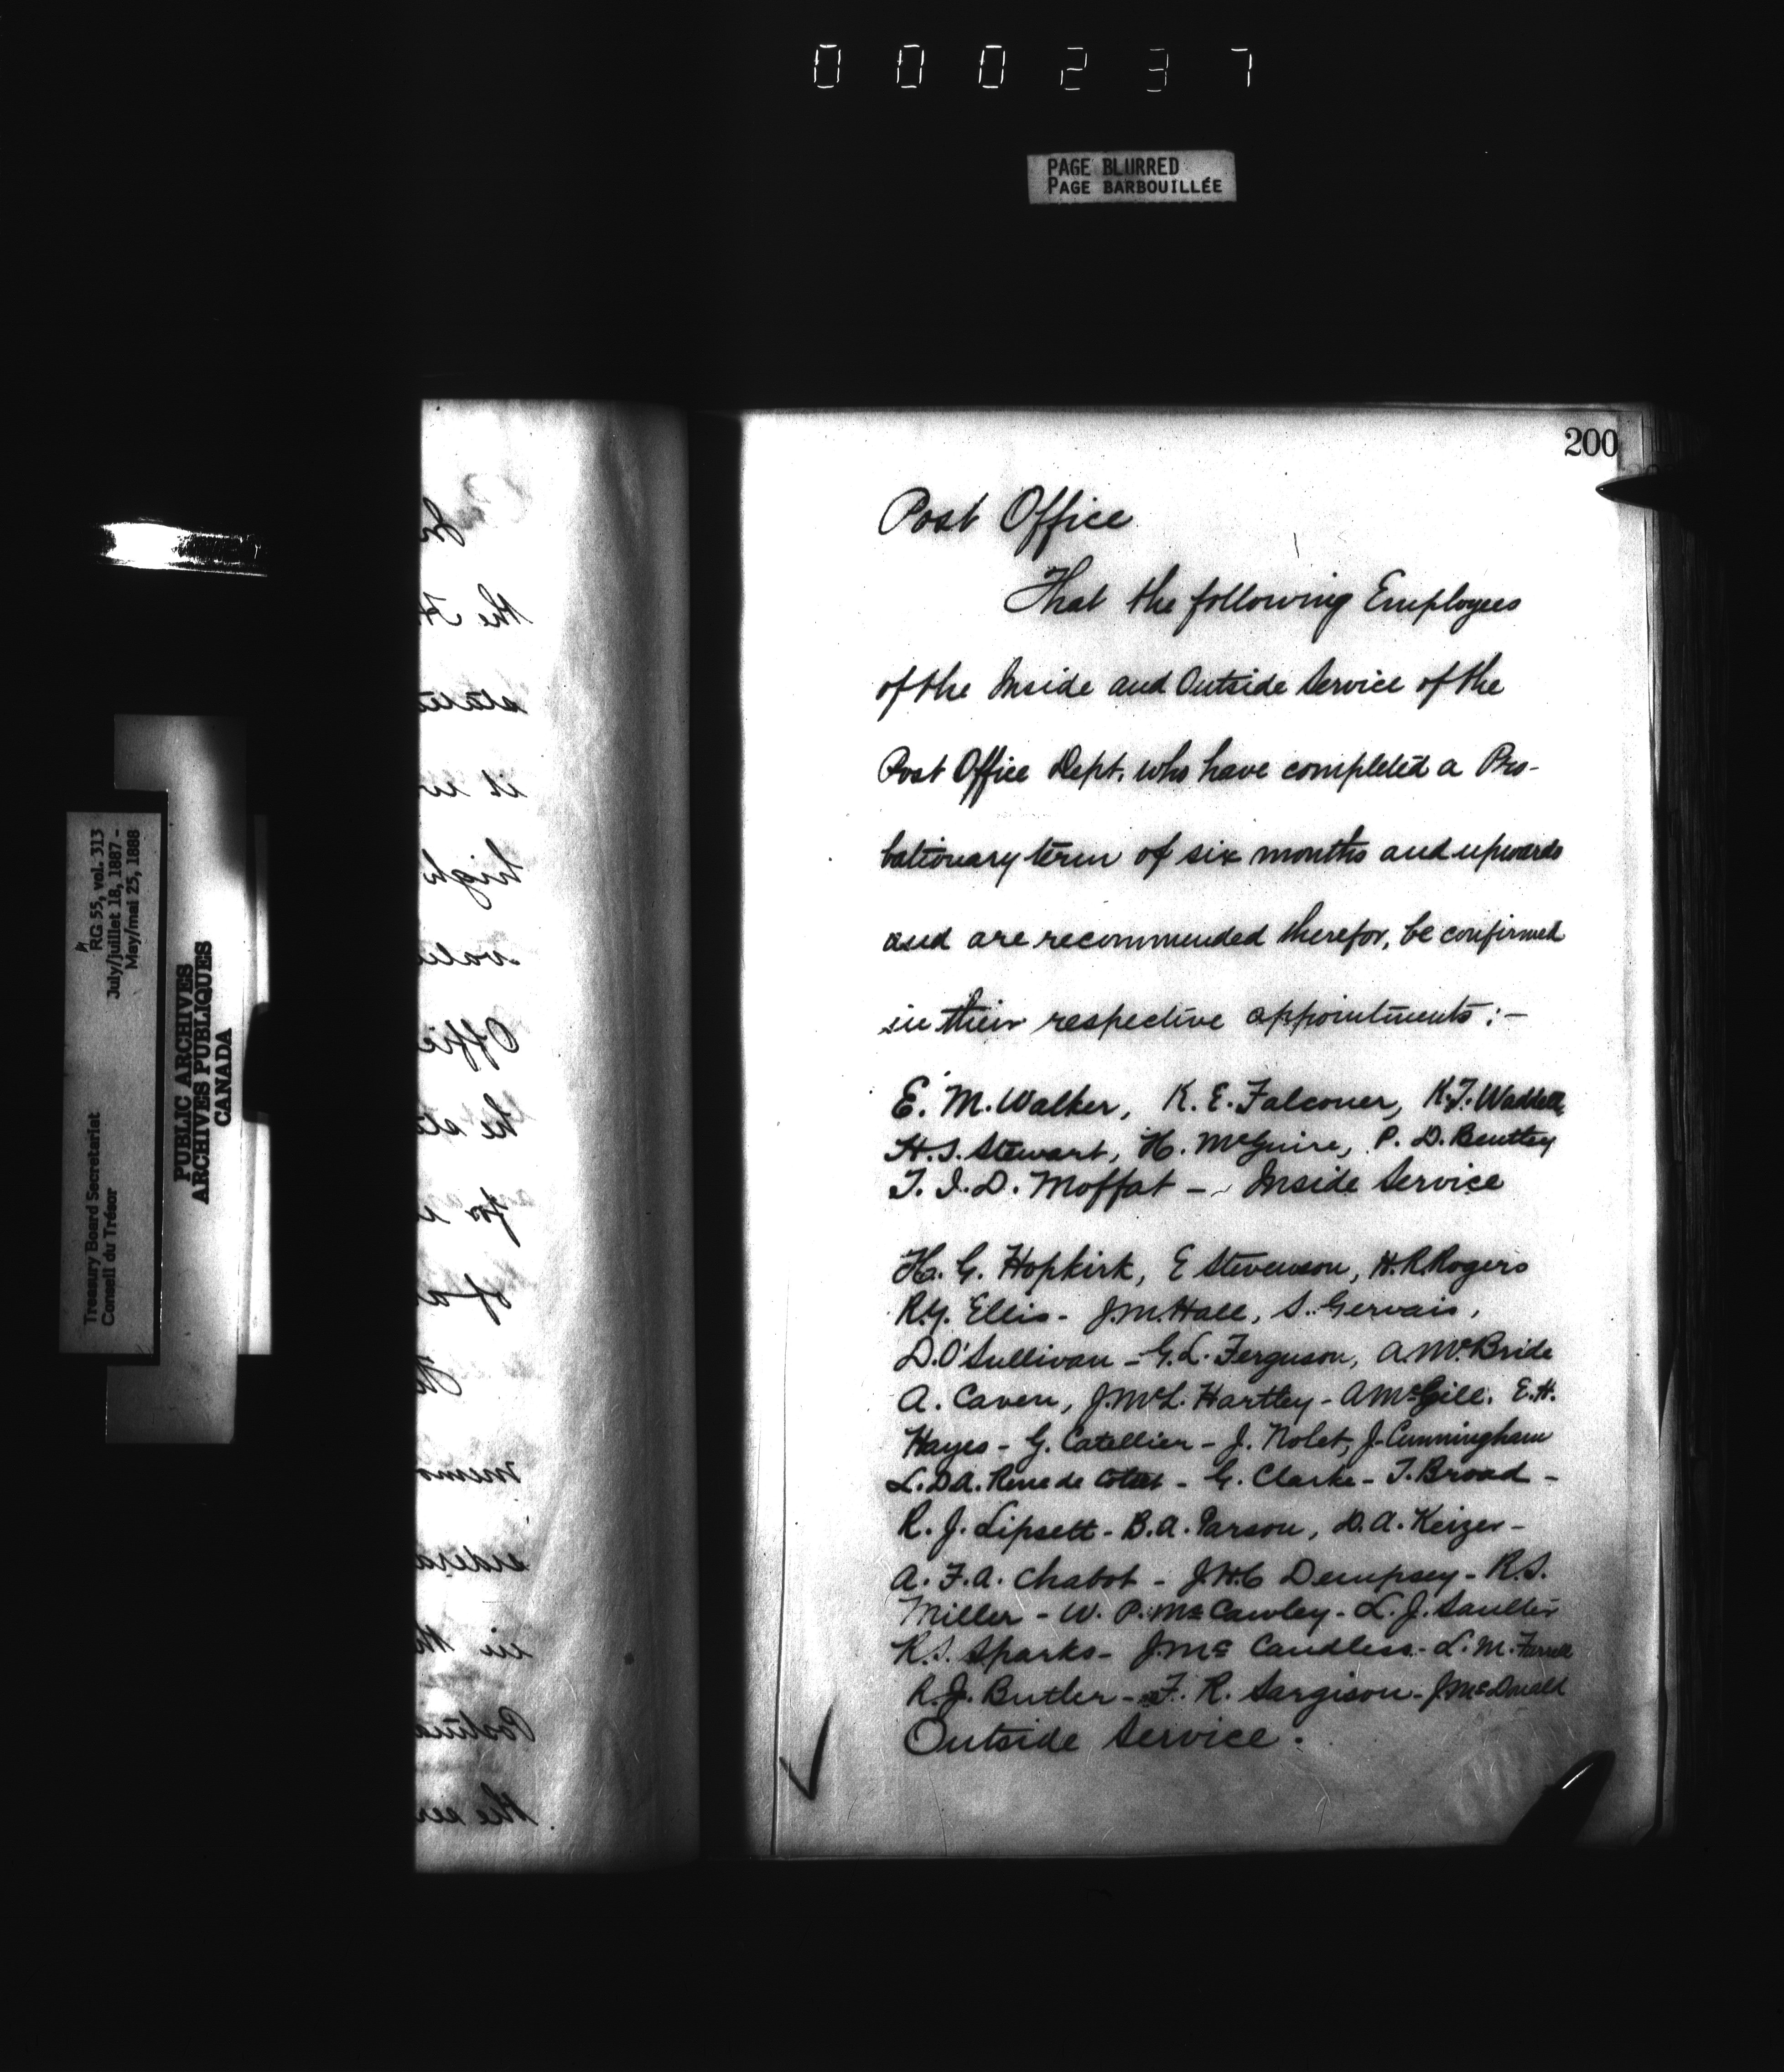 000237
PAGE BLURRED
PAGE BARBOUILLÉE
RG 55, vol. 313
July/juillet 18, 1887 -
May/mai 25, 1888
Treasury Board Secretariat
Conseil du Trésor
PUBLIC ARCHIVES
ARCHIVES PUBLIQUES
CANADA
200
Post Office
That the following Employees
of the Inside and Outside Service of the
Post Office Dept. who have completed a Pro-
bationary term of six months and upwards
and are recommended therefor, be confirmed
in their respective appointments :-
E. M. Walker, K. E. Falconer, K. F. Waddell,
H. S. Stewart, H. McGuire, P. D. Bentley
T. I. D. Moffat - Inside Service
H. G. Hopkirk, E Stevenson, H. R. Rogers
R. Y. Ellis - J. M. Hall, S. Gervais,
D. O'Sullivan - G. L. Ferguson, A. McBride
A. Caven, J. McL. Hartley - A McGill. E. H.
Hayes - G. Catellier - J. Nolet, J. Cunningham
L. D. A. Rene de - G. Clarke - T. Broad -
R. J. Lipsett - B. A. Parson, D. A. Keizer -
A. F. A. Chabot - J. H. C Dempsey - R. S.
Miller - W. P. McCawley - L. J. Saulter
R. S. Sparks - J. Mc Candless - L. M.
R. J. Butler - F. R. Sargison - J. McDonald
Outside Service.